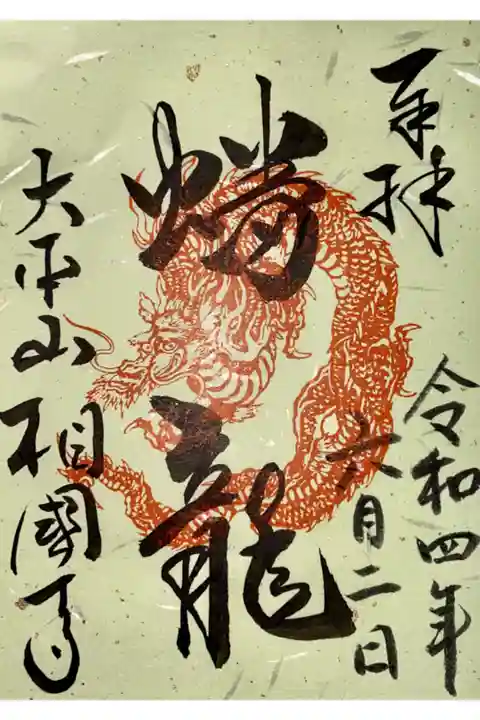 奉拝
令和四年
六月二日
蟠龍
大平山相國寺